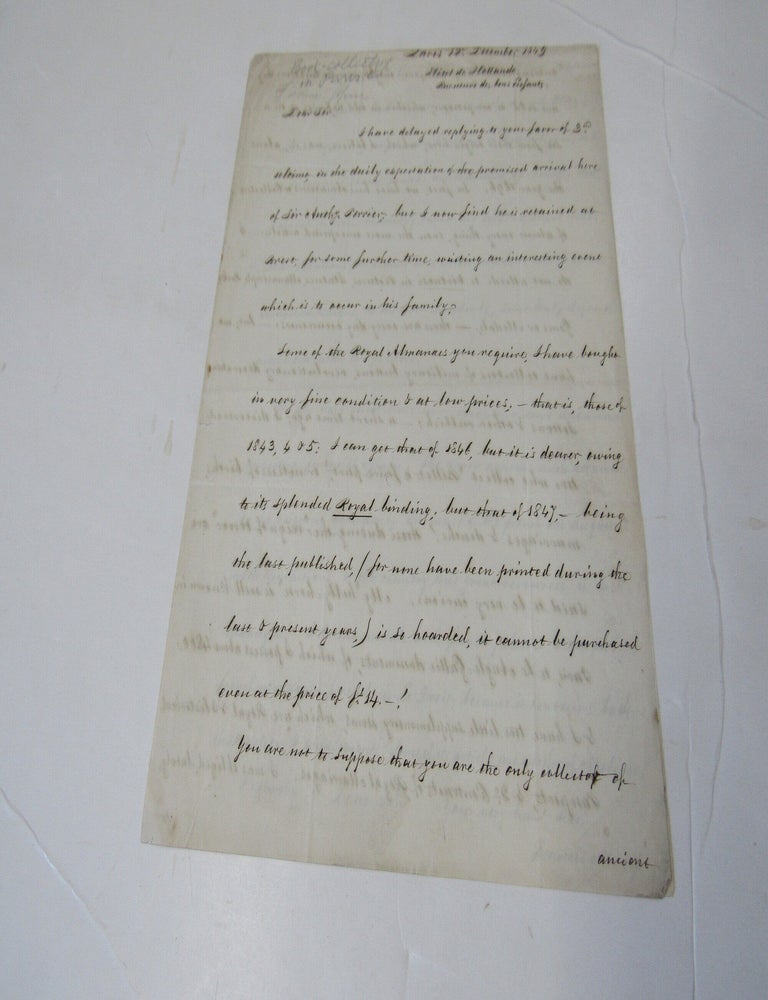 Book-collector
in Paris
Paris 12. December 1849
Hôtel de Hollande,
Rue neuve des bons Enfants,
Dear Sir,
I have delayed replying to your favor of 3.d
in the daily expectation of the promised arrival here
of Sir Anth.y Perrier; but I now find he is retained at
Brest, for some further time, waiting an interesting event
which is to occur in his family.
Some of the Royal Almanacs you require, I have bought
in very fine condition & at low prices; – that is, those of
1843, 4 & 5: I can get that of 1846, but it is dearer, owing
to its splendid Royal binding; but that of 1847, – being
the last published, (for none have been printed during the
last & present years,) is so hoarded, it cannot be purchased
even at the price of 14. – !
You are not to suppose that you are the only collector of
ancient